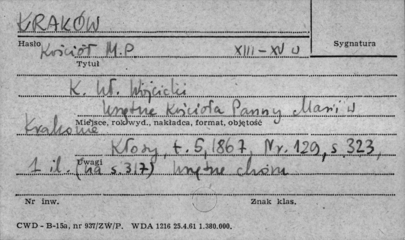 KRAKÓW
Hasło Kościół M.P. XIII-XV w Sygnatura
Tytuł
K. Wł. Wójcicki
Wnętrze Kościoła Panny Marii w
Miejsce, rok wyd., nakładca, format, objętość
Krakowie
Kłosy, t. 5, 1867, Nr. 129, s. 323,
Uwagi
1 il. (na s. 317) Wnętrze chóru
Nr inw. Znak klas.
CWD - B-15a, nr 937/ZW/P. WDA 1216 25.4.61 1.380.000.